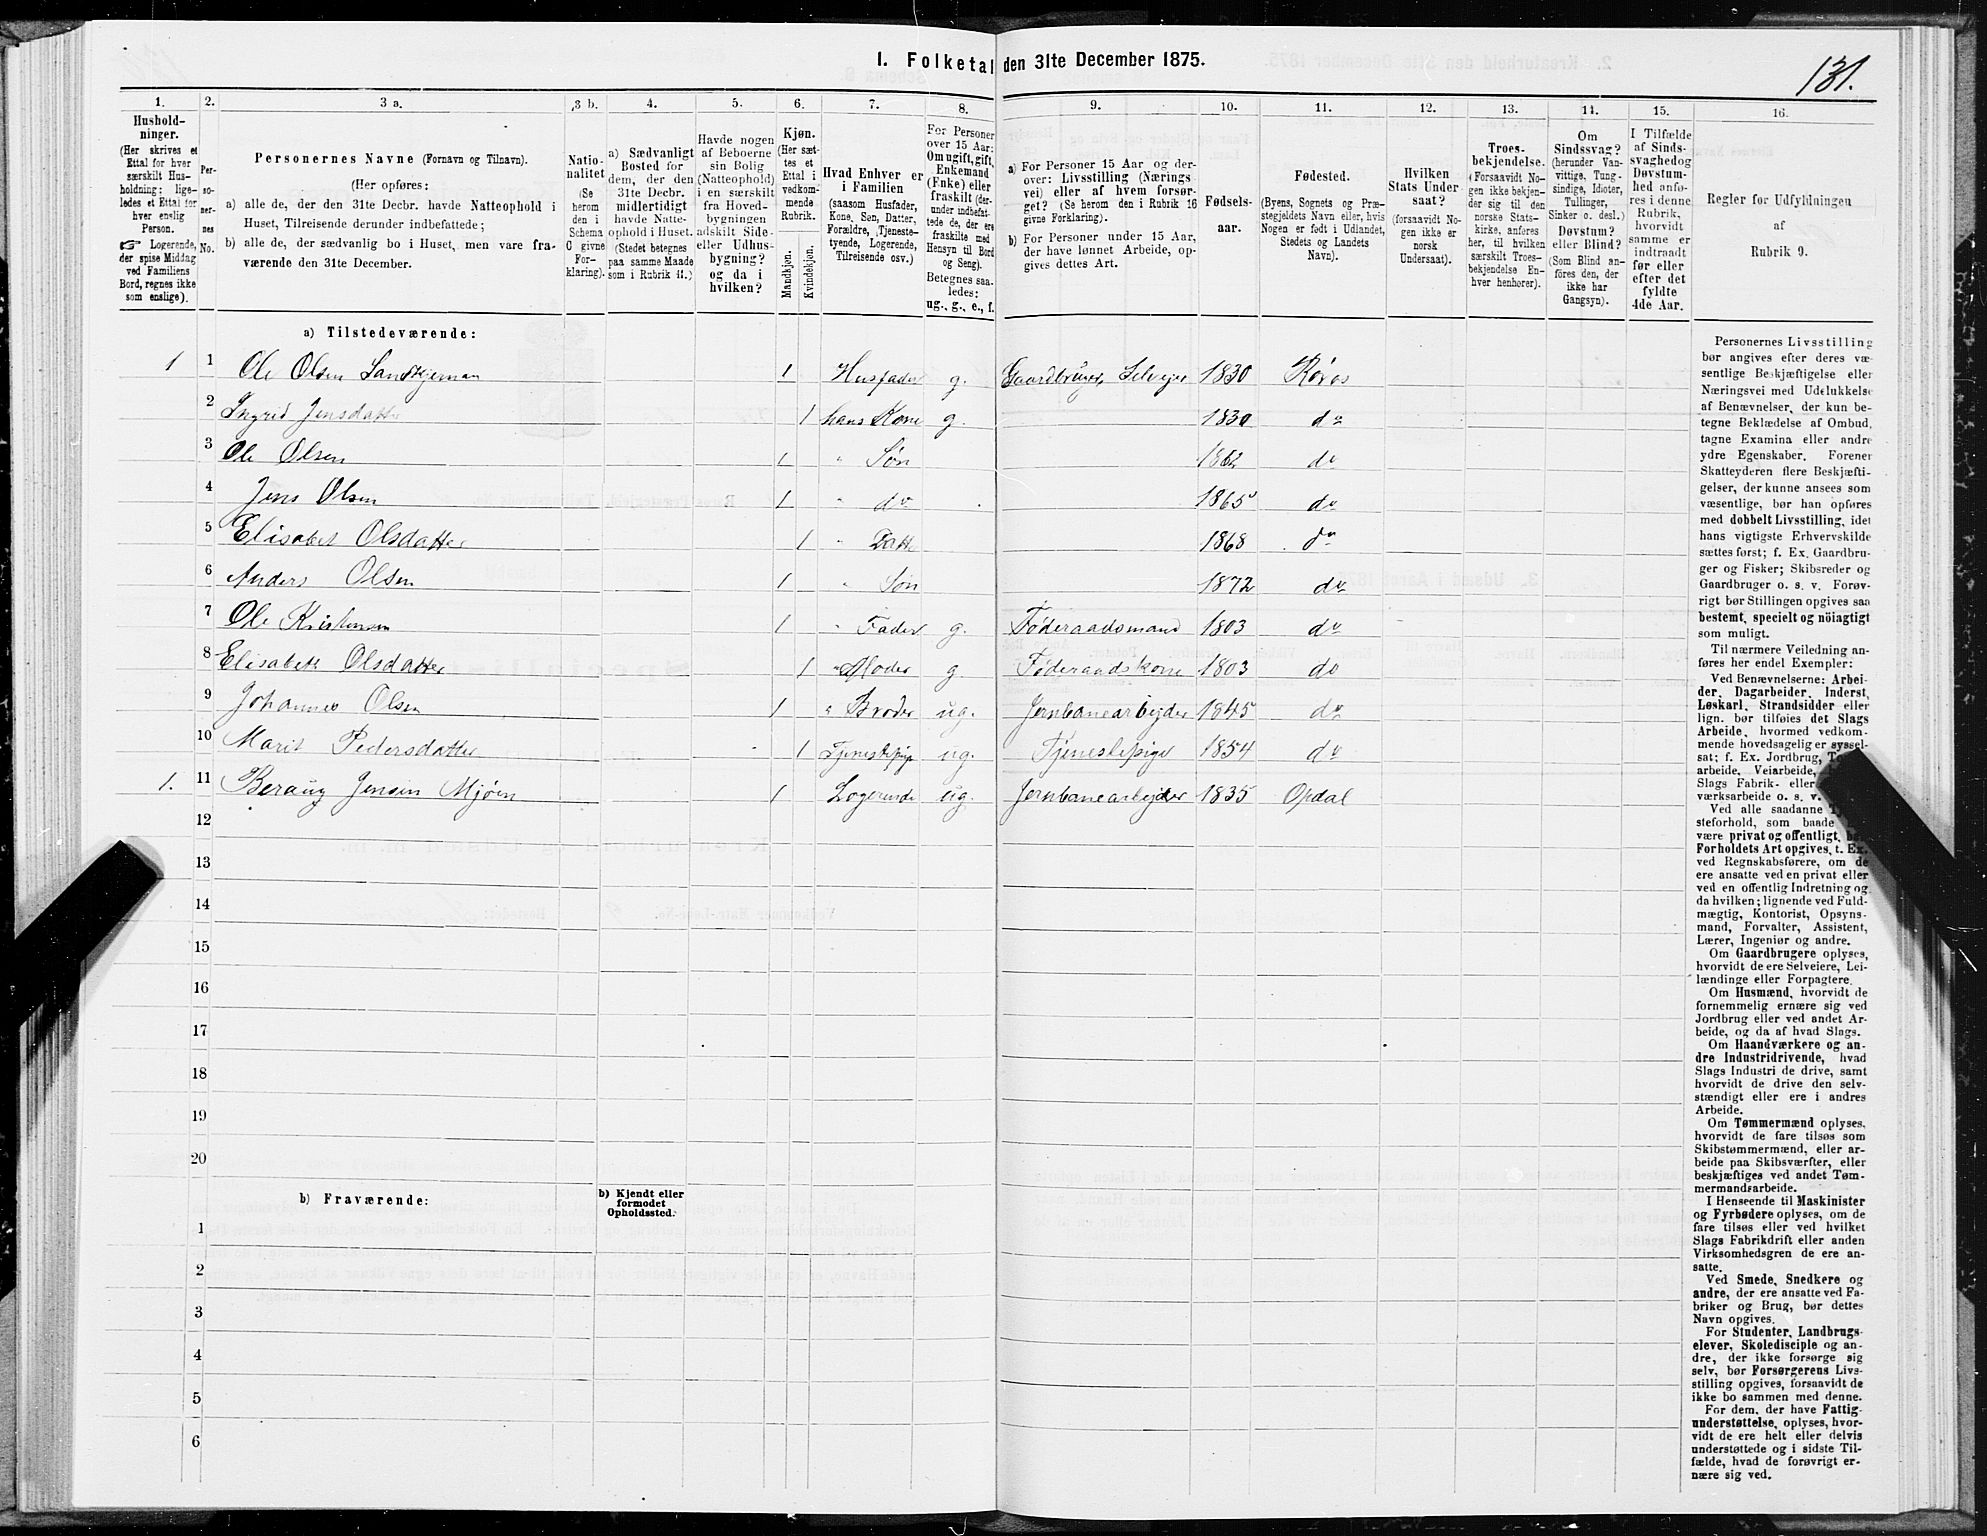 131.
1. Folketal den 31te December 1875.
1. 2. 3 a. 3 b. 4. 5. 6. 7. 8. 9. 10. 11. 12. 13. 14. 15. 16.
Hushold-
ninger.
(Her skrives et
Ettal for hver
særskilt Hus-
holdning; lige-
ledes et Ettal for
hver enslig
Person.
☞ Logerende,
der spise Middag
ved Familiens
Bord, regnes ikke
som enslige).
Per-
so-
ner-
nes
No.
Personernes Navne (Fornavn og Tilnavn).
(Her opføres:
a) alle de, der den 31te Decbr. havde Natteophold i
Huset, Tilreisende derunder indbefattede;
b) alle de, der sædvanlig bo i Huset, men vare fra-
værende den 31te December.
Natio-
nalitet
(Se
herom
den i
Schema
C givne
For-
klaring).
a) Sædvanligt
Bosted for
dem, der den
31te Decbr.
midlertidigt
havde Natte-
ophold i Huset.
(Stedet betegnes
paa samme Maade
som i Rubrik 11.)
Havde nogen
af Beboerne
sin Bolig
(Natteophold)
i en særskilt
fra Hoved-
bygningen
adskilt Side-
eller Udhus-
bygning?
og da i
hvilken?
Kjøn.
(Her sæt-
tes et
Ettal i
vedkom-
mende
Rubrik.
Mandkjøn.
Kvindekjøn.
Hvad Enhver er
i Familien
(saasom Husfader,
Kone, Søn, Datter,
Forældre, Tjeneste-
tyende, Logerende,
Tilreisende osv.)
For Personer
over 15 Aar:
Om ugift, gift,
Enkemand
(Enke) eller
fraskilt (der-
under indbefat-
tede de, der ere
fraskilte med
Hensyn til Bord
og Seng).
Betegnes saa-
ledes:
ug., g., e., f.
a) For Personer 15 Aar og der-
over: Livsstilling (Nærings-
vei) eller af hvem forsør-
get? (Se herom den i Rubrik 16
givne Forklaring).
b) For Personer under 15 Aar,
der have lønnet Arbeide, op-
gives dettes Art.
Fødsels-
aar.
Fødested.
(Byens, Sognets og Præ-
stegjeldets Navn eller, hvis
Nogen er født i Udlandet,
Stedets og Landets
Navn).
Hvilken
Stats Under-
saat?
(forsaavidt No-
gen ikke er
norsk
Undersaat).
Troes-
bekjendelse.
(Forsaavidt No-
gen ikke bekjen-
der sig til den
norske Stats-
kirke, anføres
her, til hvilken
særskilt Troes-
bekjendelse En-
hver henhører).
Om
Sindssvag?
(herunder Van-
vittige, Tung-
sindige, Idioter,
Tullinger,
Sinker o. desl.)
Døvstum?
eller Blind?
(Som Blind an-
føres den, der
ikke har
Gangsyn).
I Tilfælde
af Sinds-
svaghed og
Døvstum-
hed anfø-
res i denne
Rubrik,
hvorvidt
samme er
indtraadt
før eller
efter det
fyldte
4de Aar.
Regler for Udfyldningen
af
Rubrik 9.
a) Tilstedeværende:
1 1 Ole Olsen 1 Husfader g. Gaardbruger, Selveier 1830 Røros
2 Ingrid Jensdatter 1 hans Kone g. 1830 do
3 Ole Olsen 1 " Søn 1862 do
4 Jens Olsen 1 " do 1865 do
5 Elisabet Olsdatter 1 " Datte 1868 do
6 Anders Olsen 1 " Søn 1872 do
7 Ole Kristensen 1 " Fader g. Føderaadsmand 1803 do
8 Elisabeth Olsdatter 1 " Moder g Føderaadskone 1803 do
9 Johannes Olsen 1 " Broder ug. Jernbanearbejder 1845 do
10 Marit Pedersdatter 1 Tjenestepige ug. Tjenestepige 1854 do
1. 11 Jensen Mjøen 1 Logerende ug. Jernbanearbejder 1835 Opdal
12
13
14
15
16
17
18
19
20
b) Fraværende:
b) Kjendt eller
formodet
Opholdssted.
1
2
3
4
5
6
Personernes Livsstilling
bør angives efter deres væ-
sentlige Beskjæftigelse eller
Næringsvei med Udelukkelse
af Benævnelser, der kun be-
tegne Beklædelse af Ombud,
tagne Examina eller andre
ydre Egenskaber. Forener
Skatteyderen flere Beskjæfti-
gelser, der kunne ansees som
væsentlige, bør han opføres
med dobbelt Livsstilling, idet
hans vigtigste Erhvervskilde
sættes først; f. Ex. Gaardbru-
ger og Fisker; Skibsreder og
Gaardbruger o. s. v. Forøv-
rigt bør Stillingen opgives saa
bestemt, specielt og nöiagtigt
som muligt.
Til nærmere Veiledning an-
føres her endel Exempler:
Ved Benævnelserne: Arbei-
der, Dagarbeider, Inderst,
Løskarl, Strandsidder eller
lign. bør tilføies det Slags
Arbeide, hvormed vedkom-
mende hovedsagelig er syssel-
sat; f. Ex. Jordbrug,
arbeide, Veiarbeide,
Slags Fabrik- eller
værksarbeide o. s. v.
Ved alle saadanne
steforhold, som baade
være privat og offentlig,
Forholdets Art opgives, t. Ex.
ved Regnskabsførere, om de
ere ansatte ved en privat eller
ved en offentlig Indretning og
da hvilken; lignende ved Fuld-
mægtig, Kontorist, Opsyns-
mand, Forvalter, Assistent,
Lærer, Ingeniør og andre.
Om Gaardbrugere oplyses,
hvorvidt de ere Selveiere, Lei-
lændinge eller Forpagtere.
Om Husmænd, hvorvidt de
fornemmelig ernære sig ved
Jordbrug eller ved andet Ar-
beide, og da af hvad Slags.
Om Haandværkere og an-
dre Industridrivende, hvad
Slags Industri de drive, samt
hvorvidt de drive den selv-
stændigt eller ere i andres
Arbeide.
Om Tømmermænd oplyses,
hvorvidt de fare tilsøs som
Skibstømmermænd, eller ar-
beide paa Skibsværfter, eller
beskjæftiges ved andet Tøm-
mermandsarbeide.
I Henseende til Maskinister
og Fyrbødere oplyses, om de
fare tilsøs eller ved hvilket
Slags Fabrikdrift eller anden
Virksomhedsgren de ere an-
satte.
Ved Smede, Snedkere og
andre, der ere ansatte ved Fa-
briker og Brug, bør dettes
Navn opgives.
For Studenter, Landbrugs-
elever, Skoledisciple og an-
dre, der ikke forsørge sig
selv, bør Forsørgerens Livs-
stilling opgives, forsaavidt de
ikke bo sammen med denne.
For dem, der have Fattig-
understøttelse, oplyses, hvor-
vidt de ere helt eller delvis
understøttede og i sidste Til-
fælde, hvad de forøvrigt er-
nære sig ved.